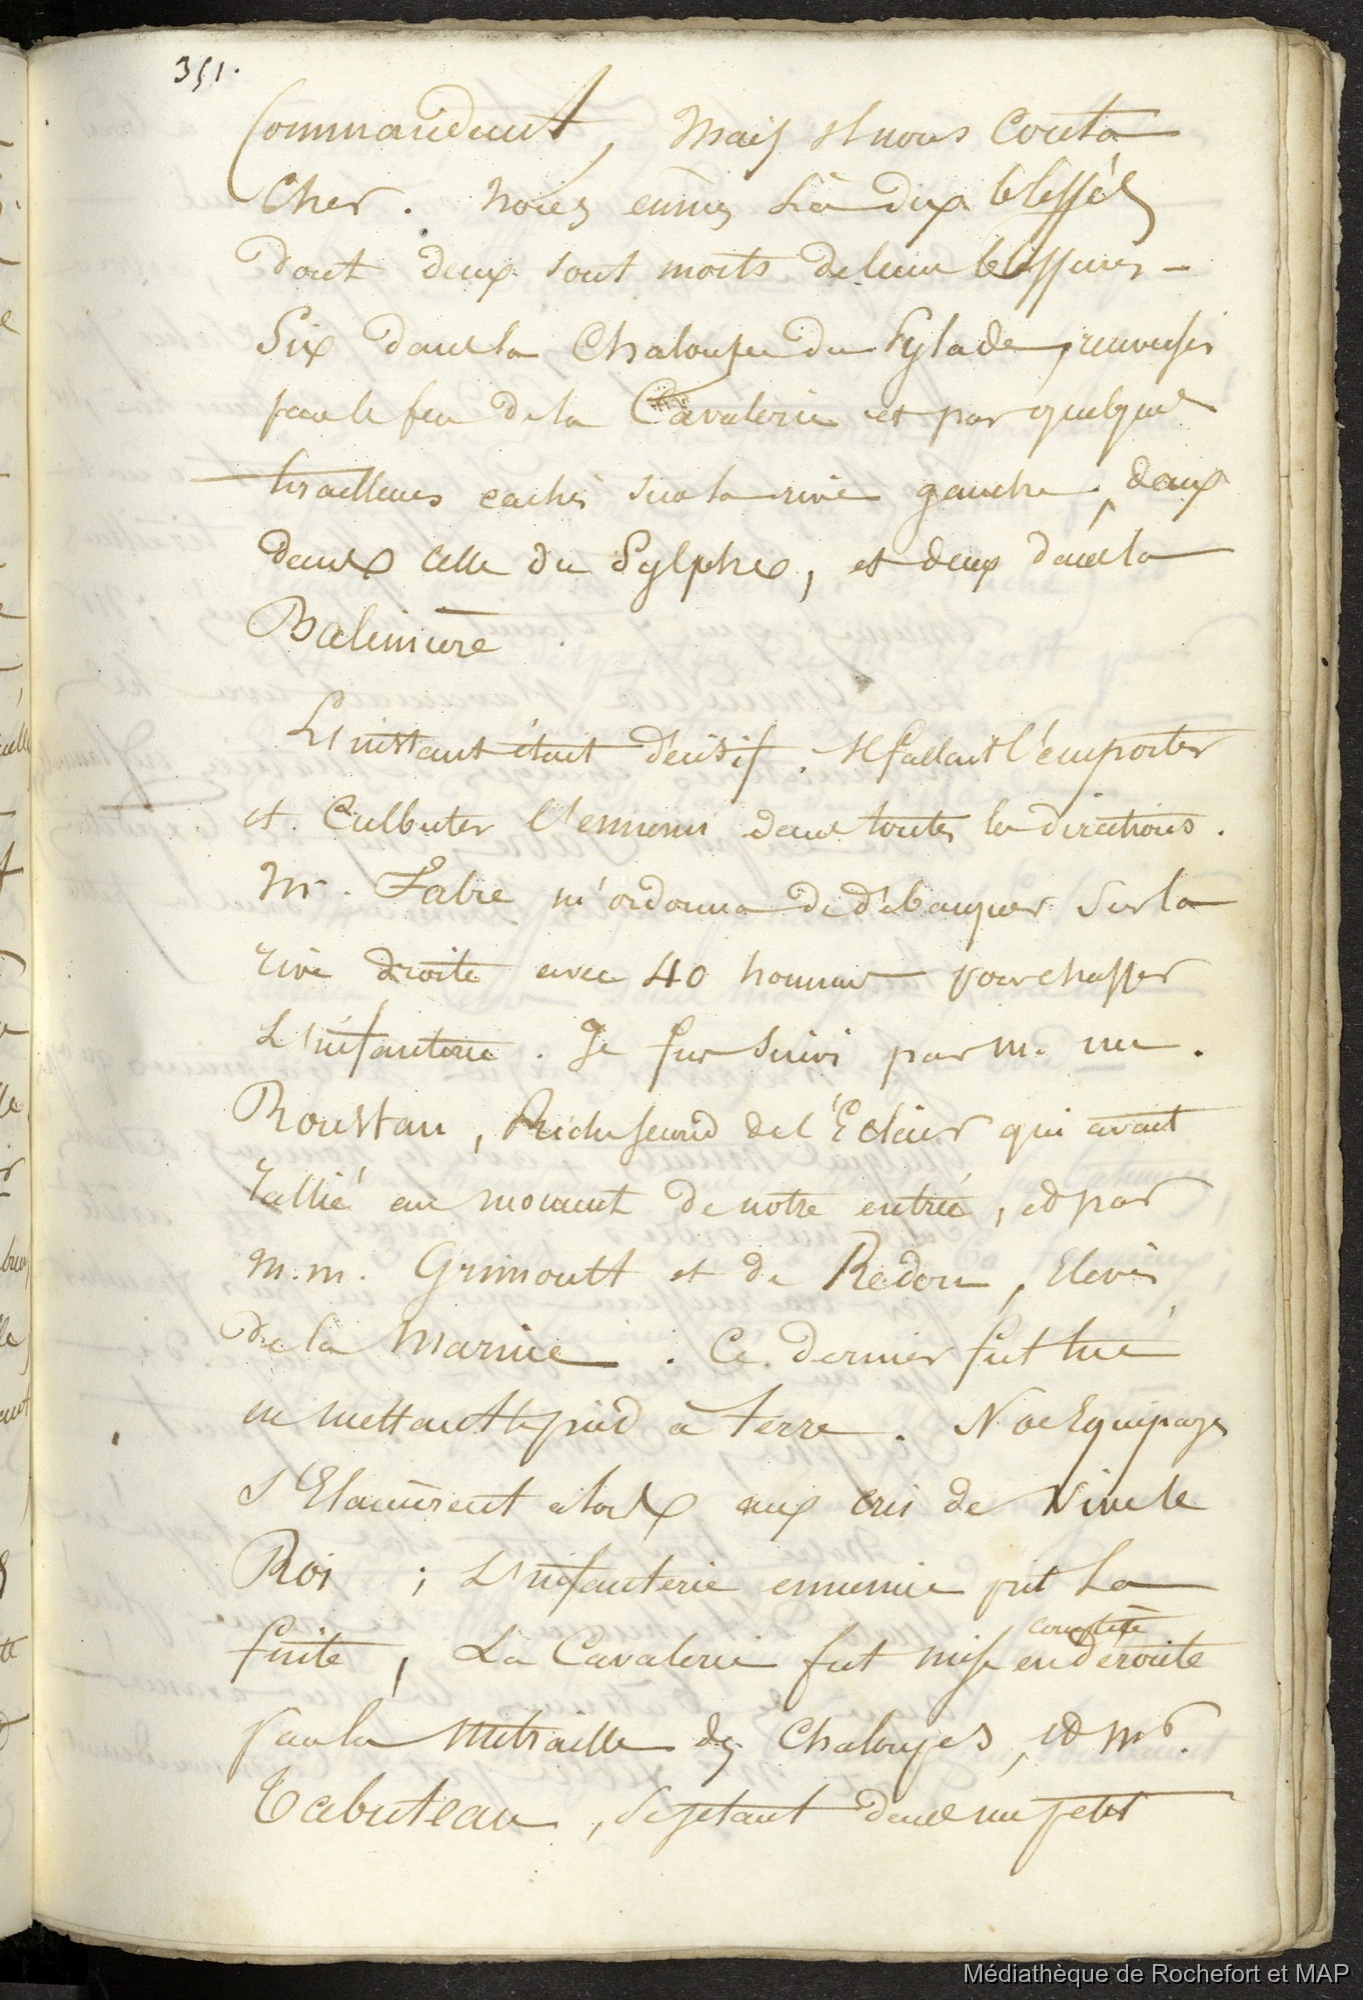 351.
Commandant, Mais il nous couta
Cher. nous eûmes là dix blessés
dont deux sont morts de leurs blessures -
Six dans la Chaloupe du Pylade, renversés
par le feu de la Cavalerie et par quelques
tirailleurs cachés sur la rive gauche, deux
dans celle du Sylphe, et deux dans la
Balinière
L'instant était décisif. Il fallait l'emporter
et Culbuter l'ennemi dans toutes les directions.
Mr. Fabre m'ordonna de débarquer sur la
rive droite avec 40 hommes pour chasser
L'infanterie. Je fus suivi par m.
Roustan, second de l'Eclair qui avait
rallié au moment de notre entrée, et par
m.m. Grimoult et de Redon, Elevés
de la Marine. Ce dernier fut tué
en mettant le pied à terre. Nos Equipages
s'Elancèrent alors aux cris de Vive le
Roi ; L'infanterie ennemie prit la
fuite, La Cavalerie fut mise en complète déroute
par la Mitraille des Chaloupes, et Mr.
Tabuteau, se jetant dans un petit
Médiathèque de Rochefort et MAP